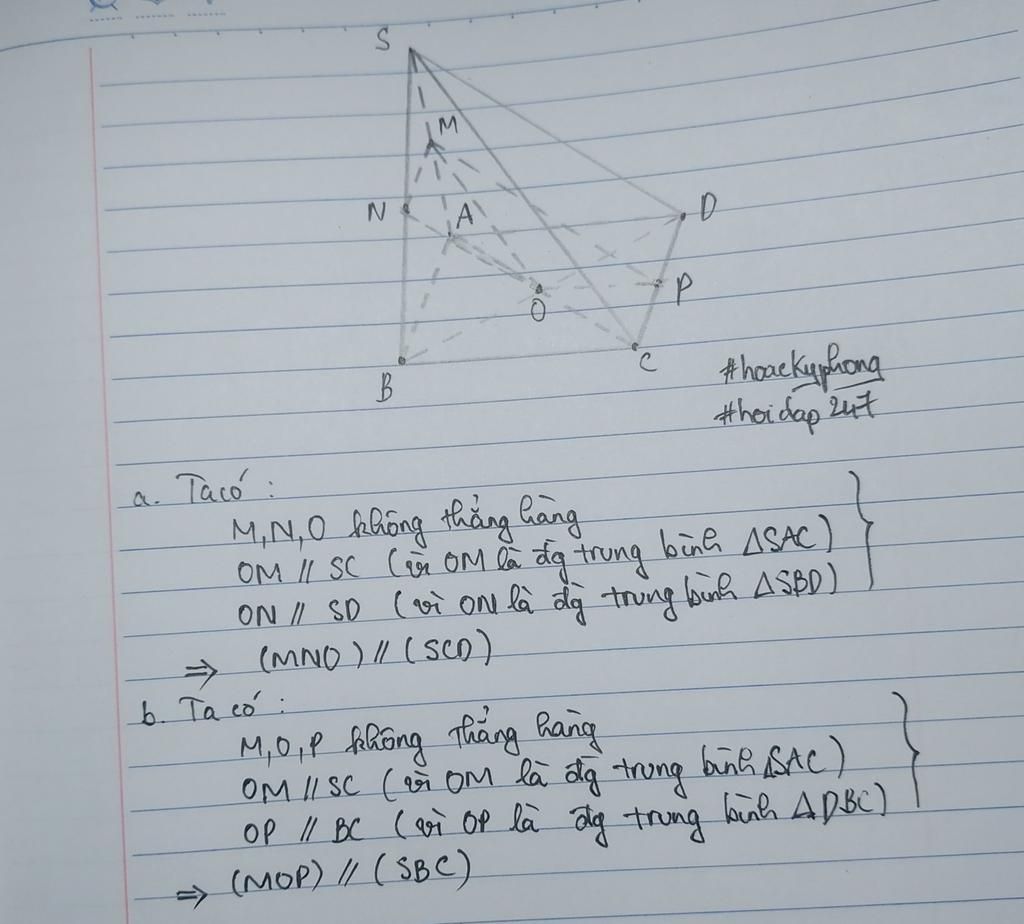 S
M
N
A
D
P
O
B
C
#hoacKyphong
#hoidap247
a. Ta có :
M, N, O không thẳng hàng
OM // SC (vì OM là đg trung bình ΔSAC)
ON // SD (vì ON là đg trung bình ΔSBD)
⇒ (MNO) // (SCD)
b. Ta có :
M, O, P không thẳng hàng
OM // SC (vì OM là đg trung bình ΔSAC)
OP // BC (vì OP là đg trung bình ΔDBC)
⇒ (MOP) // (SBC)